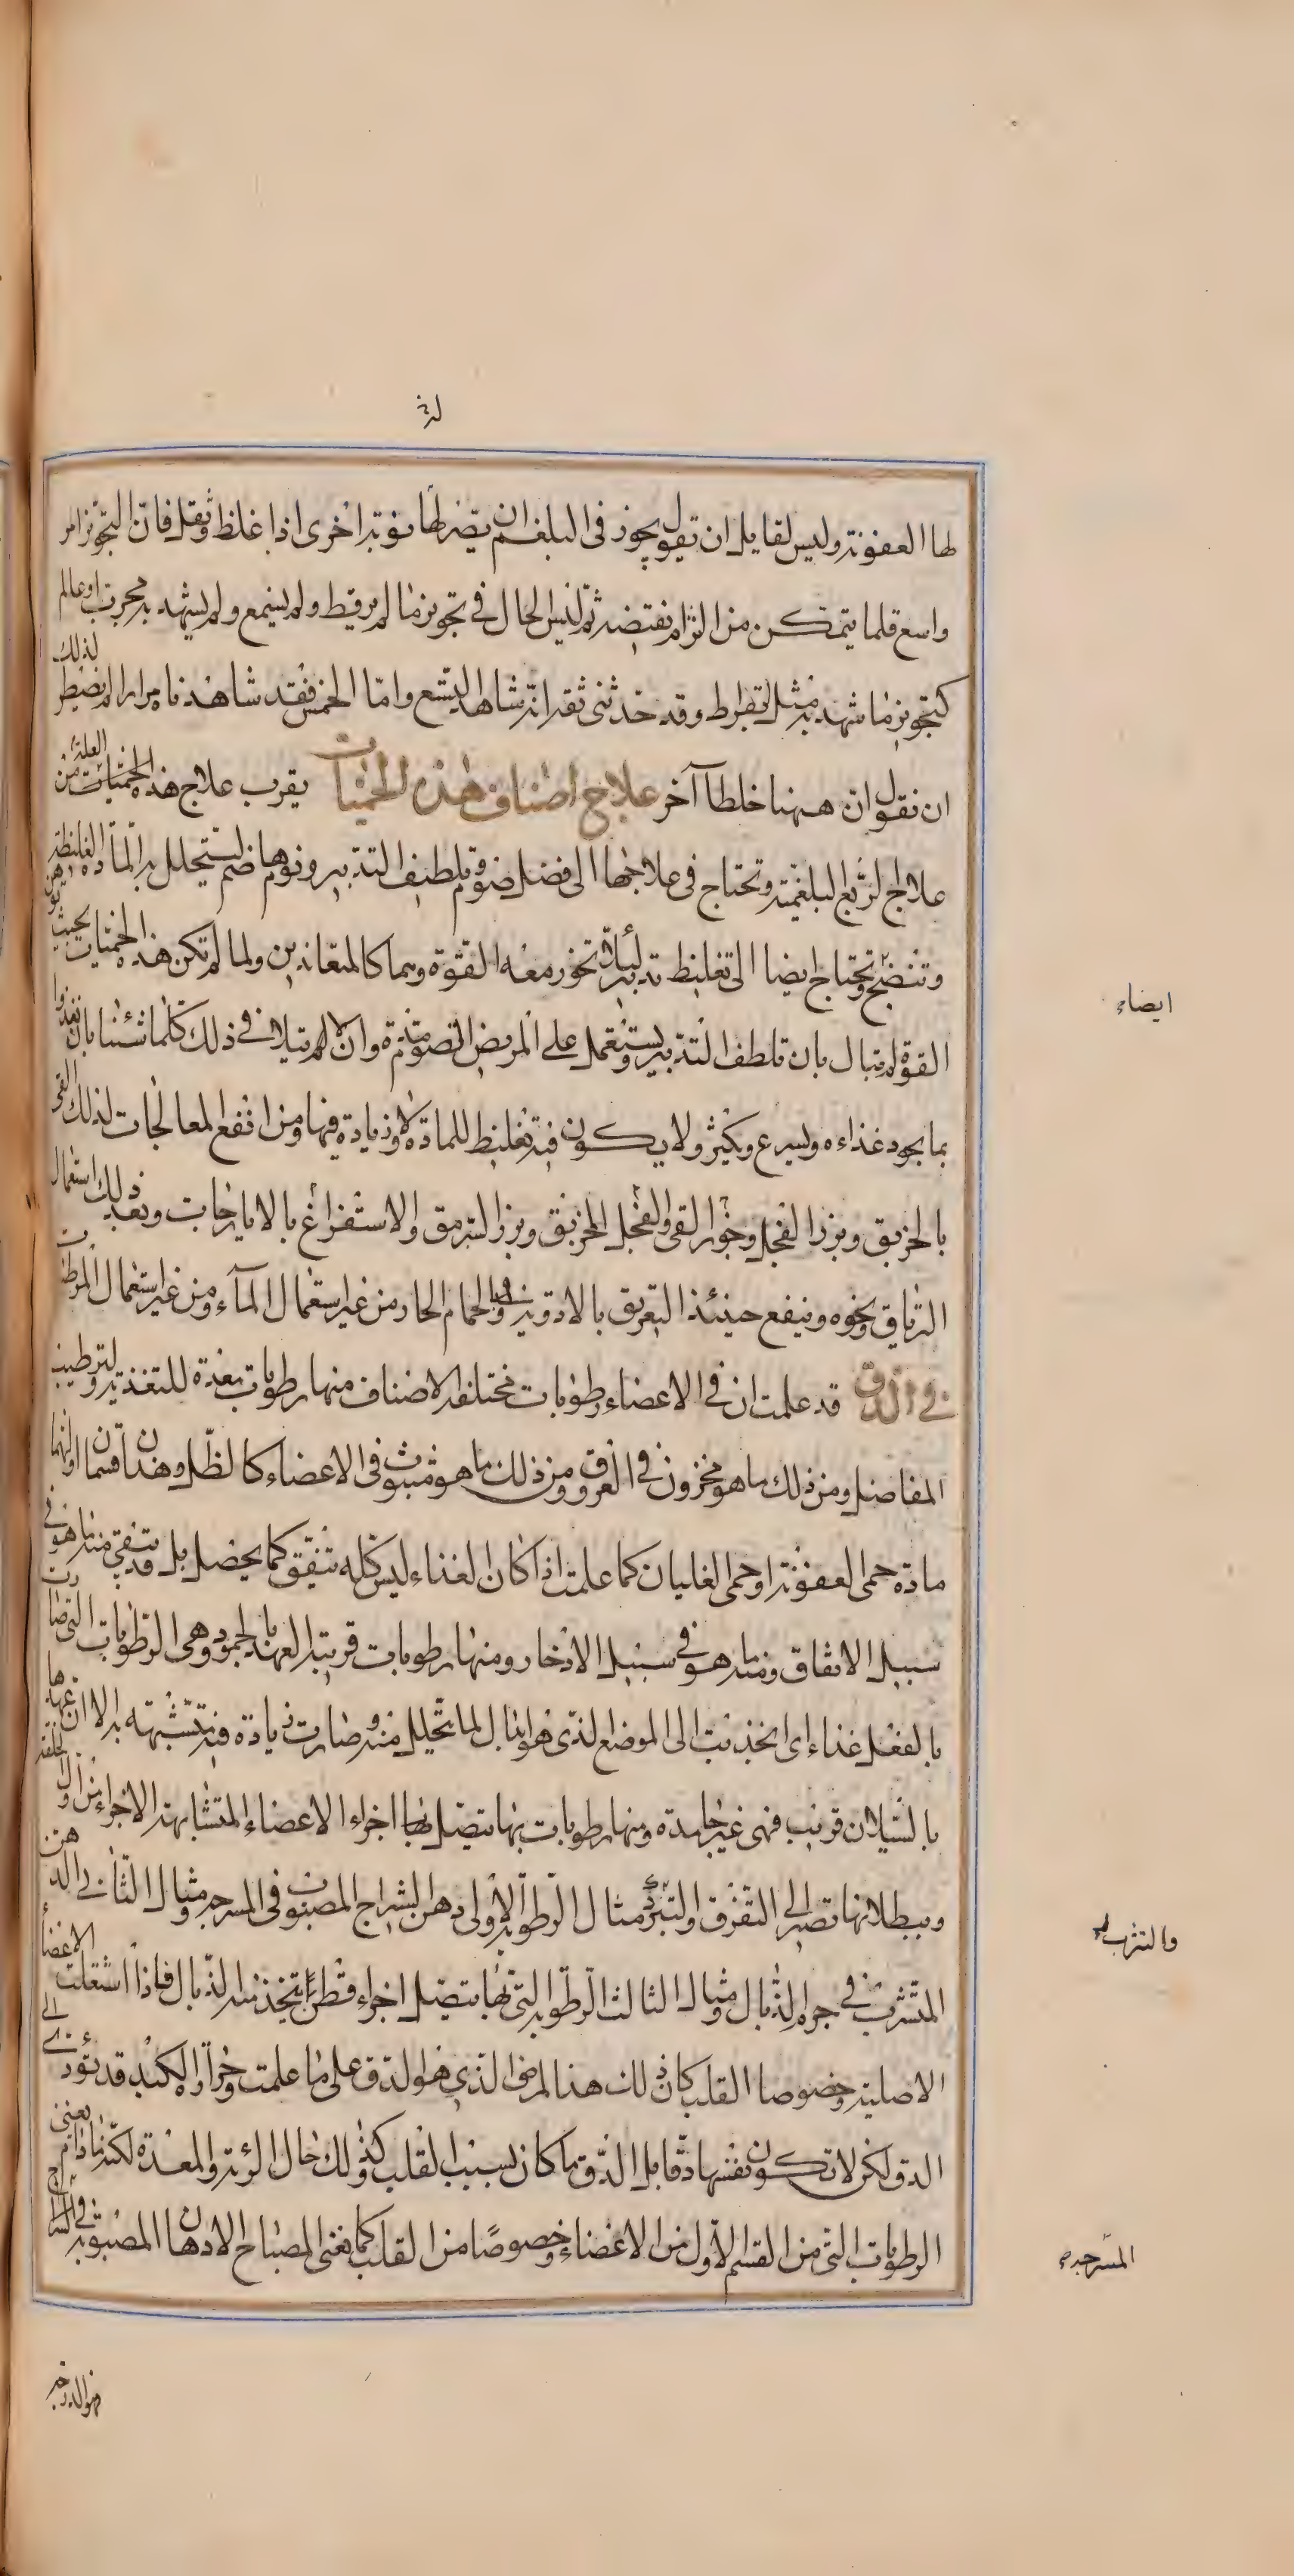 لها العفونة وليس لقايل ان تقول يجوز فى البلغم ان يصير لها نوبة اخرى اذا غلظ وثقل فان التجويز امر
واسع قلما يتمكن من الزام نقيضه ثم ليس الحال فى تجويز ما لم ير قط ولم يسمع ولم يشهد به مجرب او عالم
كتجويز ما شهد به مثل بقراط وقد حدثنى ثقة انه شاهد التسع واما الخمس فقد شاهدناه مرارا لم نضطر لذلك
ان نقول ان ههنا خلطا آخر علاج اصناف هذه الحميات يقرب علاج هذه الحميات من العلة
علاج الربع البلغمية وتحتاج فى علاجها الى فضل صوم وتلطيف التدبير ونوم وهضم ليتحلل به المادة الغليظة
وتنضج وتحتاج ايضا الى تغليظ تدبير لئلا تخور معه القوة وهما كالمتعاندين ولما لم تكن هذه الحميات بحيث توهن
القوة لم تبال بان تلطف التدبير وتستعمل على المريض الصوم مدة وان لم تبال فى ذلك كلما شئنا بان تغذوا
بما يجود غذاءه ويسرع ويكثر ولا يكون فيه تغليظ للمادة ولا زيادة فيها ومن انفع المعالجات لذلك القى
بالخربق وبزر الفجل وجوز القى والفجل المخربق وبزر السرمق والاستفراغ بالايارجات وبعد ذلك استعمال
الترياق ونحوه وينفع حينئذ التعريق بالادوية والحمام الحار من غير استعمال المآء ومن غير استعمال المرطبات
فى الدق قد علمت ان فى الاعضاء رطوبات مختلفة الاصناف منها رطوبات معدة للتغذية ولترطيب
المفاصل ومن ذلك ما هو مخزون فى العروق ومن ذلك ما هو مبثوث فى الاعضاء كالطل وهذان قسمان اولهما
مادة حمى العفونة او حمى الغليان كما علمت اذا كان الغذاء ليس كله ينفق كما يحصل بل قد يبقى منه ما هو فى
سبيل الانفاق ومنه ما هو فى سبيل الادخار ومنها رطوبات قريبة العهد بالجمود وهى الرطوبات التى صارت
بالفعل غذاء اى انجذبت الى الموضع الذى هو ابدال لما يتحلل منه وصارت زيادة فيه متشبهة به الا ان عهدها
بالسيلان قريب فهى غير جامدة ومنها رطوبات بها يتصل بها اجزاء الاعضاء المتشابهة الاجزاء من اول الخلقة
وببطلانها تصير الى التفرق او التبدد مثال الرطوبة الاولى دهن السراج المصبوب فى المسرجة ومثال الثانى الدهن
المتشرب فى جرم الذبال ومثال الثالث الرطوبة التى بها يتصل اجزاء قطن يتخذ منه الذبال فاذا اشتعلت الاعضآء
الاصلية وخصوصا القلب كان ذلك هذا المرض الذى هو الدق على ما علمت وحرارة الكبد قد تؤدى الى
الدق لكن لا تكون نفسها دقا بل الدق ما كان بسبب القلب وكذلك حال الرئة والمعدة لكنه ما دام يفنى
الرطوبات التى من القسم الاول من الاعضاء وخصوصا من القلب كما يفنى المصباح الادهان المصبوبة فى السراج
ايضاء
والتشرب
المسرجة
فهو الدرجة